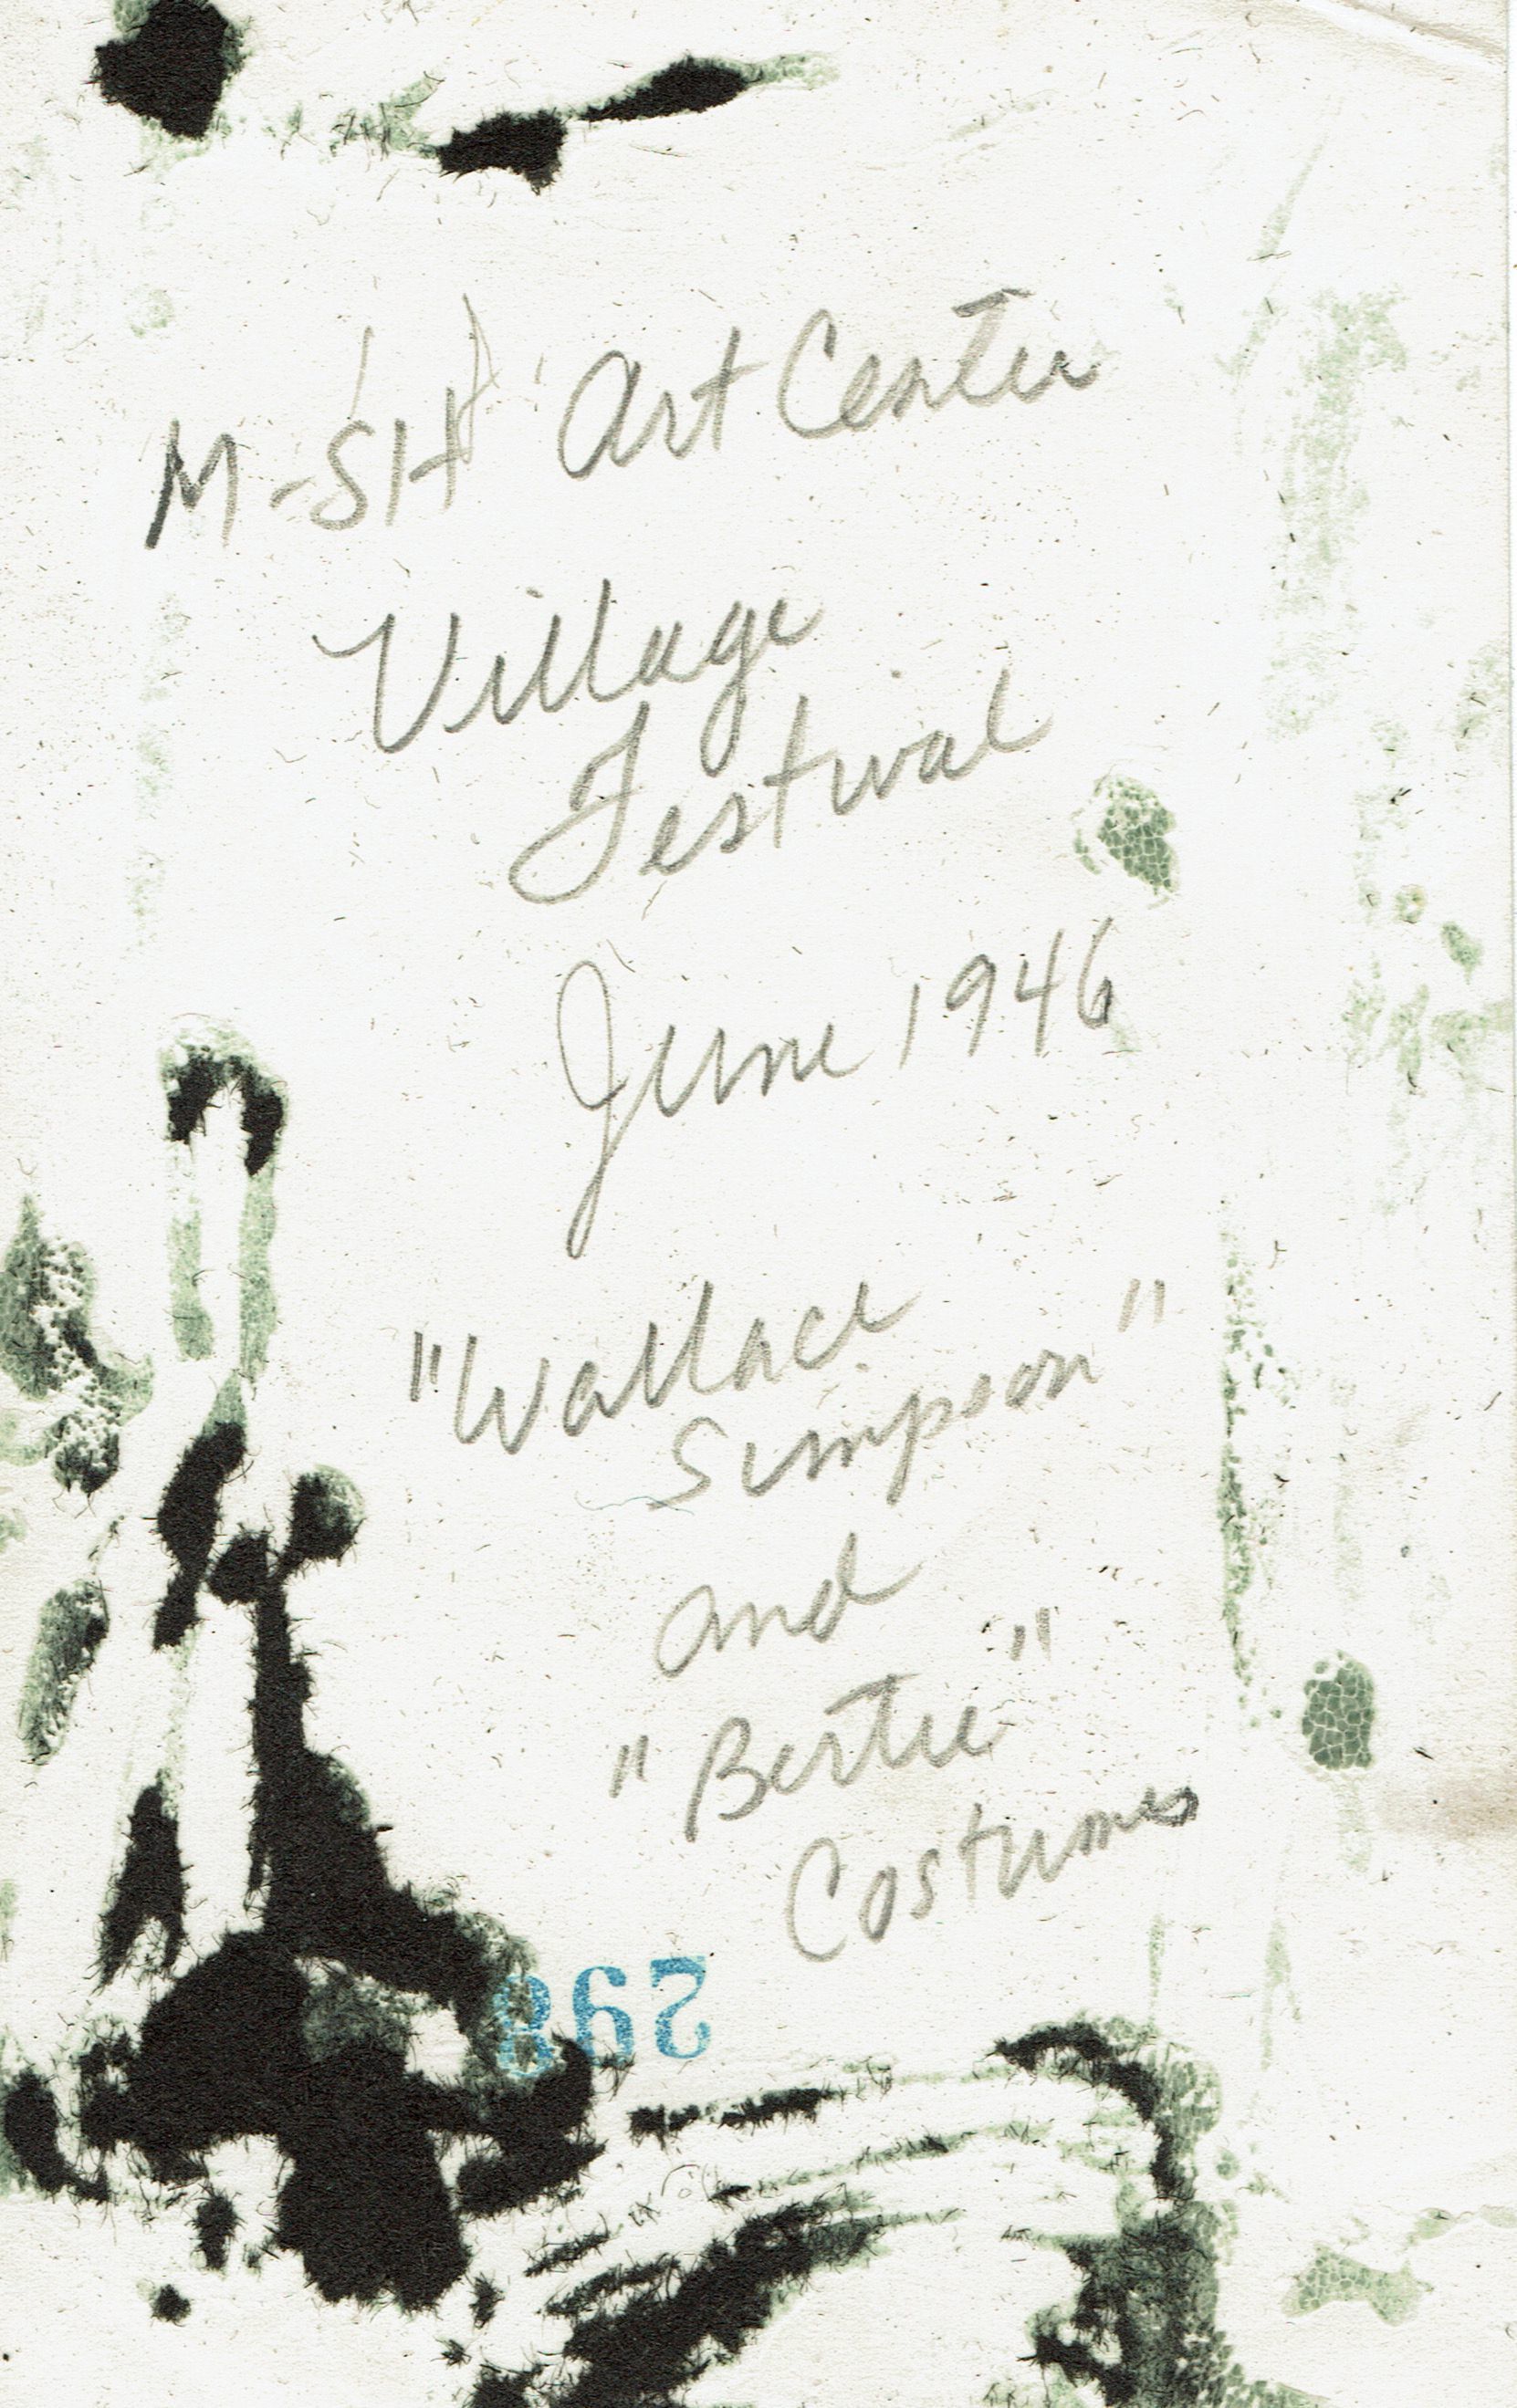 M-SH Art Center
Village
Festival
June 1946
"Wallace
Simpson"
and
"Bertie"
Costumes
298